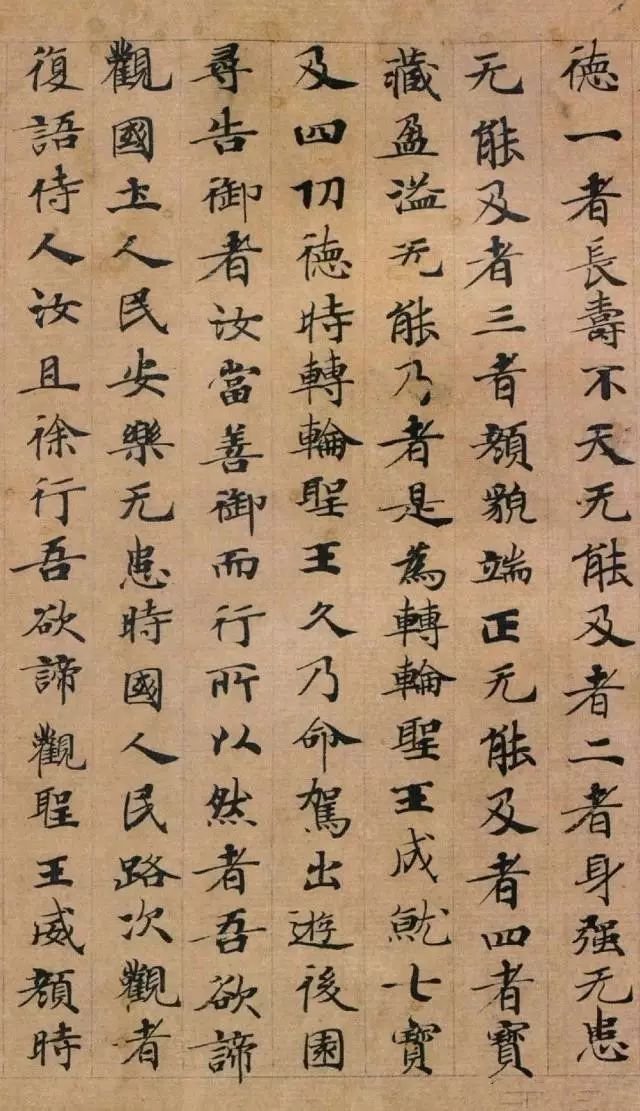 德一者長壽不夭无能及者二者身强无患
无能及者三者顏貌端正无能及者四者寶
藏盈溢无能乃者是為轉輪聖王成就七寶
及四功德時轉輪聖王久乃命駕出遊後園
尋告御者汝當善御而行所以然者吾欲諦
觀國土人民安樂无患時國人民路次觀者
復語侍人汝且徐行吾欲諦觀聖王威顏時